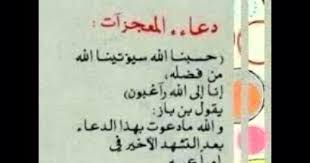 دعاء المعجزات :
(حسبنا الله سيؤتينا الله
من فضله،
إنا إلى الله راغبون)
يقول بن باز:
و الله مادعوت بهذا الدعاء
بعد التشهد الأخير في